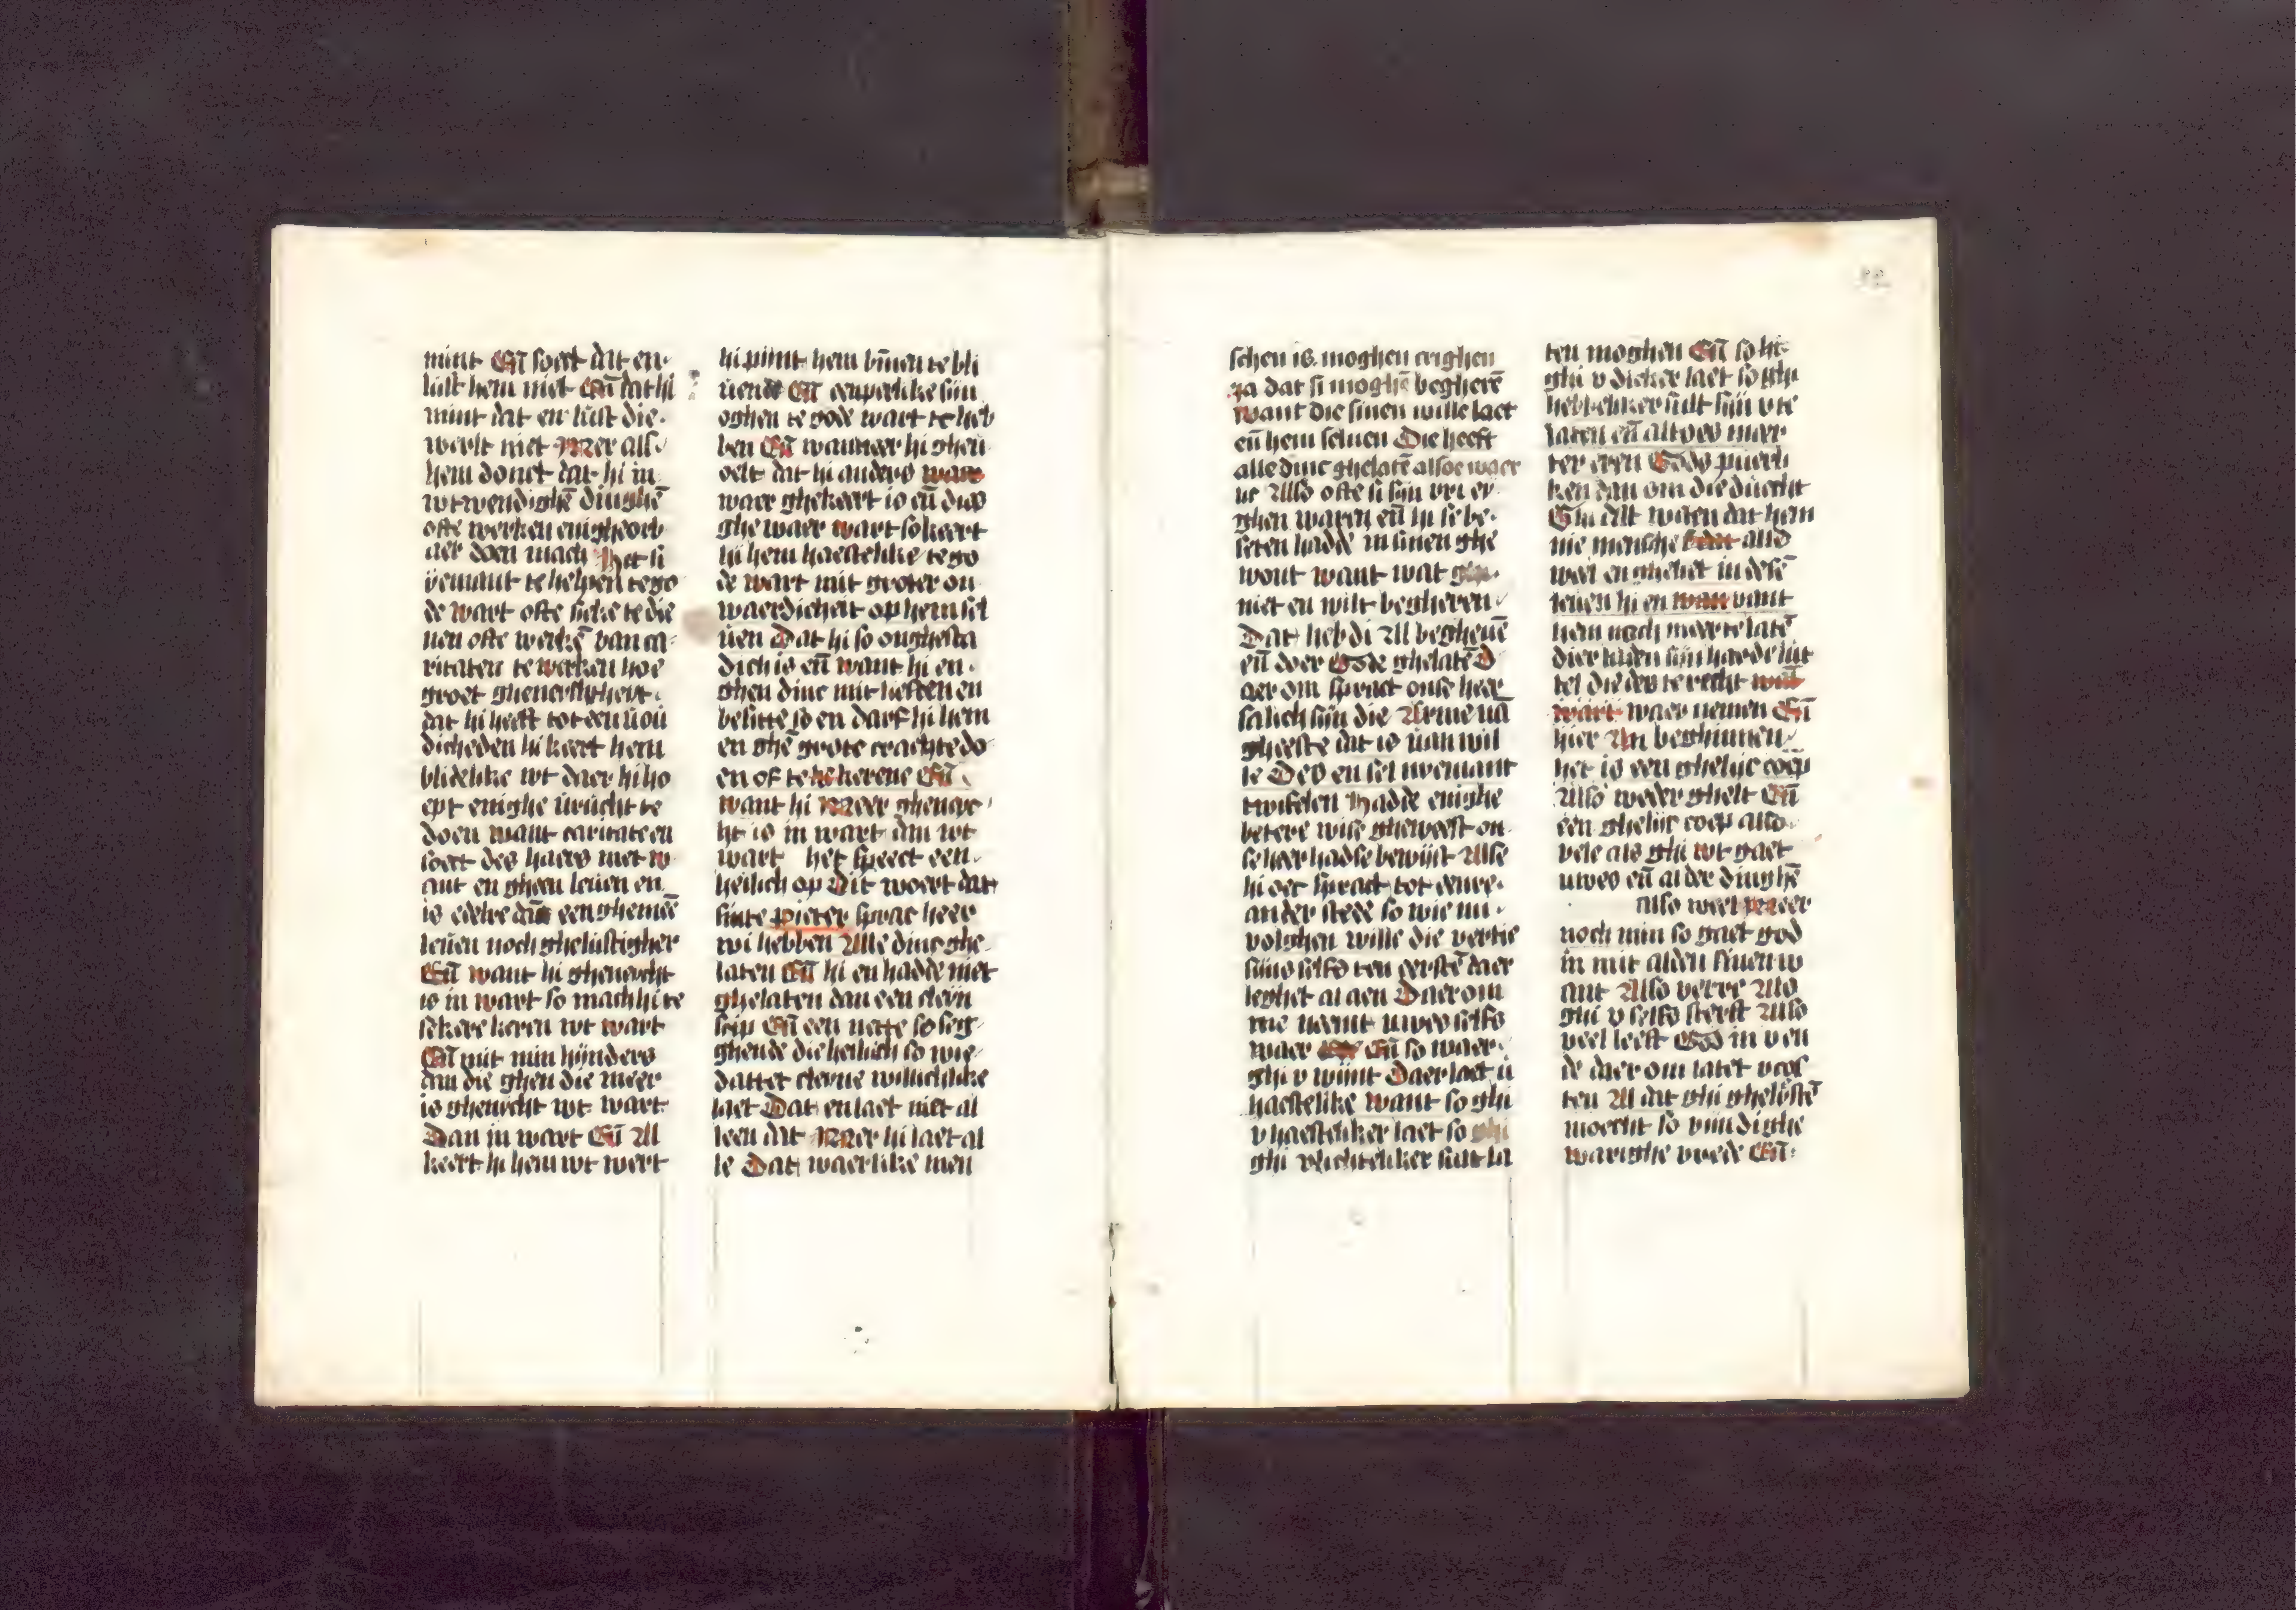 mint En̄ soect dat en
lust hem niet En̄ dat hi
mint dat en lust die
werlt niet Mer als
hem donct dat hi in
wtwendighē dinghē
ofte werken enighe orb
aer doen mach Het si
yemant te helpen te go
de wart ofte sieke te die
nen ofte werkē van ca
ritaten te werken hoe
groet gheneychtheyt
dat hi heeft tot
dicheden hi keert hem
blidelike wt daer hi ho
ept enighe vrucht te
doen want caritate en
soect des haers niet w
ant en gheen leuen en
is edelre dan een ghemeē
leuen noch ghelustigher
En̄ want hi gheneycht
is in wart so mach hi te
sekere keren wt wart
En̄ mit min hijnders
dan die ghen die meer
is gheneycht wt wart
Dan in wart En̄ Al
keert hi hem wt wert
hi pijnt hem bīnen te bli
uende En̄ eenperlike sijn
oghen te gode wart te heb
ben En̄ wanneer hi gheu
oelt dat hi anders waer
waer ghekeert is en̄ dus
ghe waer wart so keert
hi hem haestelike te go
de wart mit groter on
waerdicheit op hem sel
uen Dat hi so onghesta
dich is en̄ want hi en
ghen dinc mit lieften en
besitte so en darf hi hem
en ghē grote crachte do
en of te bekerene En̄
want hi Meer gheney
ht is in wart dan wt
wart het spreect een
heilich op Dit woert dat
sinte pieter sprac heer
wi hebben Alle dinc ghe
laten En̄ hi en hadde niet
ghelaten dan een cleyn
scip En̄ een nette so seg
ghende die heilich so wie
dattet cleyne willichlike
laet Dat en laet niet al
leen dat Mer hi laet al
le Dat waerlike men
schen is moghen crighen
ya dat si moghē begherē
want die sinen wille laet
en̄ hem seluen Die heeft
alle dinc ghelatē alsoe waer
lic Also ofte si sijn vri ey
ghen waren en̄ hi se be
seten hadde in sinen ghe
wout want wat ghi
niet en wilt begheren
Dat hebdi Al begheuē
en̄ doer Gode ghelatē D
aer om sprac onse heer
salich sijn die Arme uā
gheeste dat is uan wil
le Des en sel nyemant
twifelen Hadde enighe
betere wise gheweest on
se heer hadse bewijst Alse
hi oec sprac tot eenre
ander stede so wie mi
volghen wille die vertie
sijns selfs ten eerstē daer
leghet al aen Daer om
nie neemt uwes selfs
waer En̄ so waer
ghi v vijnt Daer laet u
haestelike want so ghi
v haesteliker laet so ghi
ghi lichteliker sult la
ten moghen En̄ so hi
ghi v dicker laet so ghi
hebbeliker sult sijn v te
laten en̄ altoes meer
ter eren Gods puerli
ken dan om die duecht
Ghi sult weten dat hem
nie mensche also
wel en ghebet in desē
leuen hi en vant
hem noch meer te latē
dier luden sijn harde lut
tel die des te recht
waer nemen En̄
hier An beghinnen
het is een ghelijc coep
Also weder ghelt En̄
een ghelijc coep also
vele als ghi wt gaet
uwes en̄ alder dinghē
also weel Meer
noch min so gaet god
in mit alden sinen w
ant Also verre Als
ghi v selfs sterft Also
veel leeft God in v en
de daer om latet v cos
ten Al dat ghi ghelostē
moecht so vijndi ghe
warighe vrede En̄